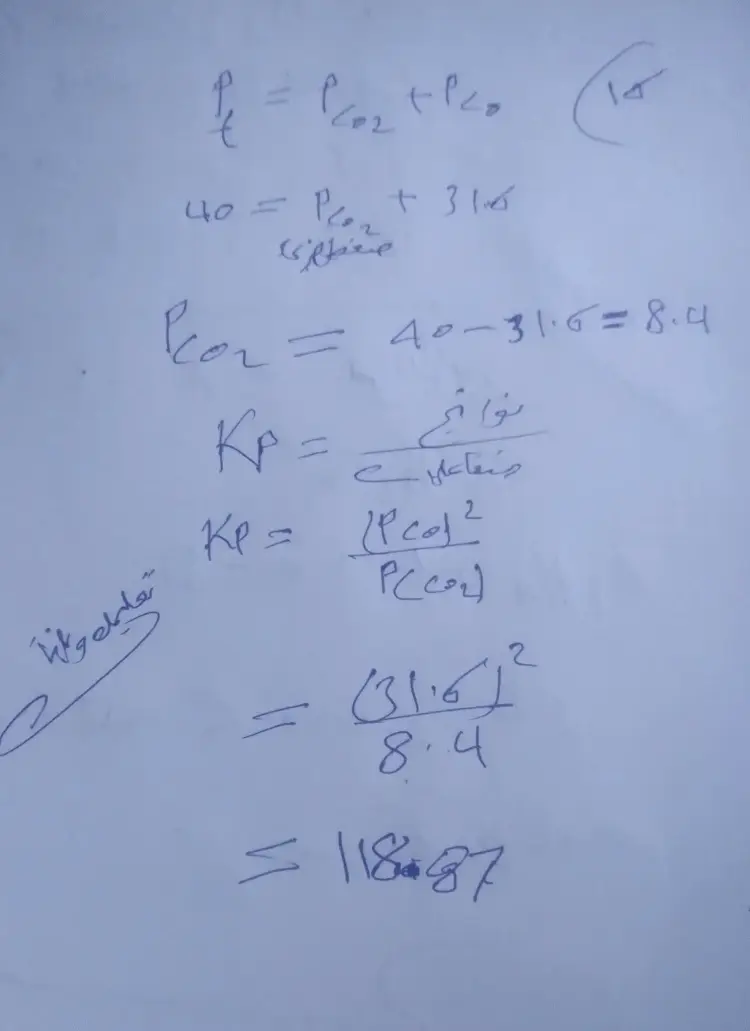 Pt = PCO2 + PCO (15
40 = PCO2 + 31.6
PCO2 = 40 - 31.6 = 8.4
KP = نواتج / متفاعلات
KP = (PCO)² / P(CO2)
= (31.6)² / 8.4
= 118.87